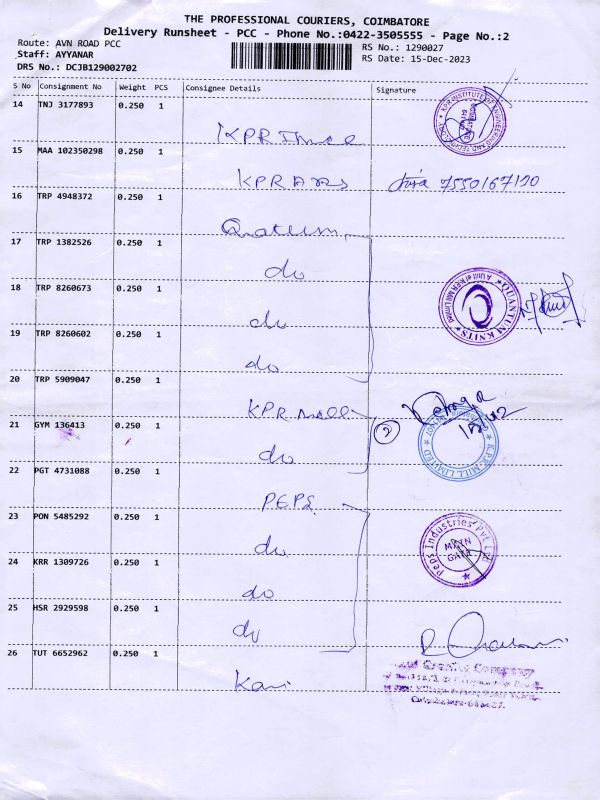 THE PROFESSIONAL COURIERS, COIMBATORE
Delivery Runsheet - PCC - Phone No.:0422-3505555 - Page No.:2
Route: AVN ROAD PCC
RS No.: 1290027
Staff: AYYANAR
RS Date: 15-Dec-2023
DRS No.: DCJB129002702
S No Consignment No Weight PCS Consignee Details Signature
14 TNJ 3177893 0.250 1
KPR
15 MAA 102350298 0.250 1
KPR Arts 7550167120
16 TRP 4948372 0.250 1
17 TRP 1382526 0.250 1
do
QUANTUM KNITS
18 TRP 8260673 0.250 1
do
19 TRP 8260602 0.250 1
do
20 TRP 5909047 0.250 1
KPR Mill
21 GYM 136413 0.250 1
2
do
K.P.R. MILL LIMITED
22 PGT 4731088 0.250 1
PEPS
23 PON 5485292 0.250 1
Peps Industries Pvt Ltd
MAIN GATE
do
24 KRR 1309726 0.250 1
do
25 HSR 2929598 0.250 1
do
26 TUT 6652962 0.250 1
Kavi